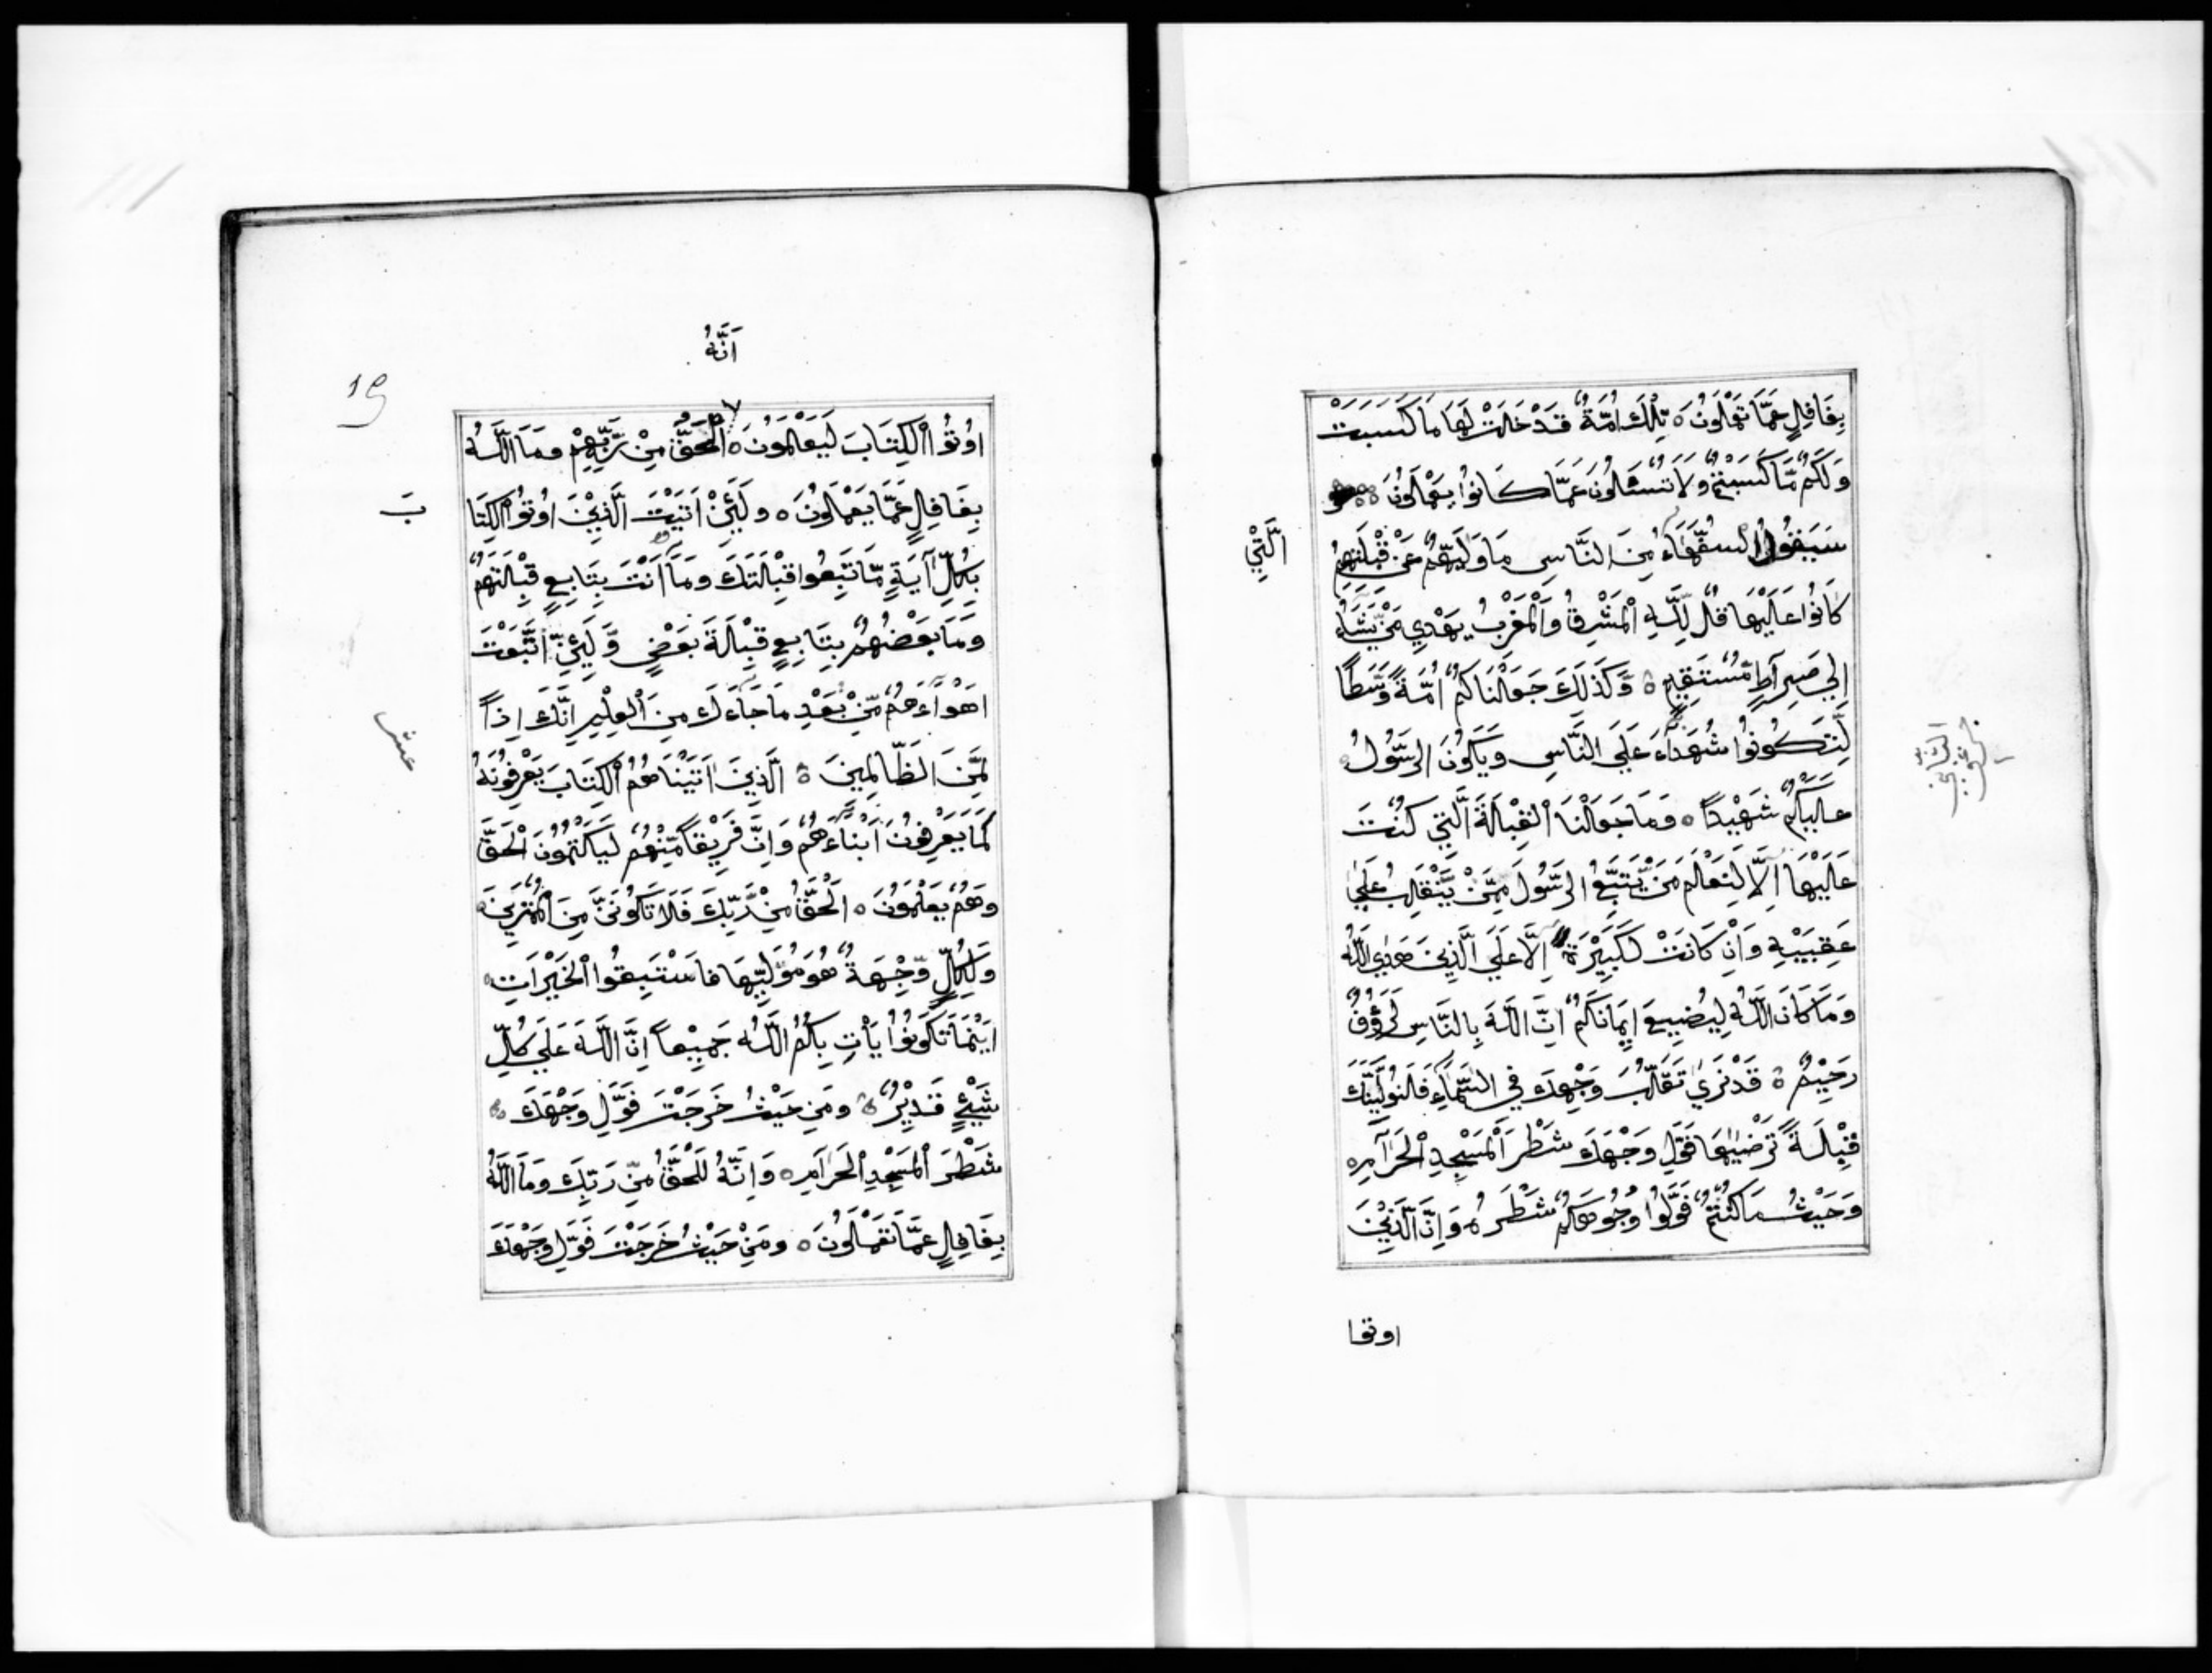 بِغَافِلٍ عَمَّا تَعْمَلُونَ ه تِلْكَ اُمَّةٌ قَدْ خَلَتْ لَهَا مَا كَسَبَتْ
وَلَكُمْ مَّا كَسَبْتُمْ وَلَا تُسْئَلُونَ عَمَّا كَانُوا يَعْمَلُونَ ه
سَيَقُولُ السُّفَهَاءُ مِنَ النَّاسِ مَا وَلَّيهُمْ عَنْ قِبْلَتِهِمُ
الَّتِيْ
كَانُوا عَلَيْهَا قُلْ لِّلَّهِ الْمَشْرِقُ وَالْمَغْرِبُ يَهْدِي مَنْ يَّشَاءُ
اِلَي صِرَاطٍ مُّسْتَقِيمٍ ه وَكَذَلِكَ جَعَلْنَاكُمْ اُمَّةً وَّسَطًا
لِّتَكُونُوا شُهَدَاءَ عَلَي النَّاسِ وَيَكُونَ الرَّسُولُ
الثاني
عَلَيْكُمْ شَهِيْدًا ه وَمَا جَعَلْنَا الْقِبْلَةَ الَّتِي كُنْتَ
عَلَيْهَا اِلَّا لِنَعْلَمَ مَنْ يَّتَّبِعُ الرَّسُولَ مِمَّنْ يَّنْقَلِبُ عَلَي
عَقِبَيْهِ وَاِنْ كَانَتْ لَكَبِيْرَةً اِلَّا عَلَي الَّذِينَ هَدَي اللَّهُ
وَمَا كَانَ اللَّهُ لِيُضِيعَ اِيمَانَكُمْ اِنَّ اللَّهَ بِالنَّاسِ لَرَؤُفٌ
رَحِيْمٌ ه قَدْ نَرَي تَقَلُّبَ وَجْهِكَ فِي السَّمَاءِ فَلَنُوَلِّيَنَّكَ
قِبْلَةً تَرْضَيهَا فَوَلِّ وَجْهَكَ شَطْرَ الْمَسْجِدِ الْحَرَامِ ه
وَحَيْثُ مَا كُنْتُمْ فَوَلُّوا وُجُوهَكُمْ شَطْرَهُ وَاِنَّ الَّذِيْنَ
اوتوا
19
اَنَّهُ
اوُتُوا الْكِتَابَ لَيَعْلَمُونَ ه الْحَقُّ مِنْ رَّبِّهِمْ وَمَا اللَّهُ
بِغَافِلٍ عَمَّا يَعْمَلُونَ ه وَلَئِنْ اَتَيْتَ الَّذِيْنَ اوُتُوا الْكِتَا
بَ
بِكُلِّ آيَةٍ مَّا تَبِعُوا قِبْلَتَكَ وَمَا اَنْتَ بِتَابِعٍ قِبْلَتَهُمْ
وَمَا بَعْضُهُمْ بِتَابِعٍ قِبْلَةَ بَعْضٍ وَّلَئِنِ اتَّبَعْتَ
اَهْوَاءَهُمْ مِّنْ بَعْدِ مَا جَاءَكَ مِنَ الْعِلْمِ اِنَّكَ اِذًا
عشر
لَّمِنَ الظَّالِمِينَ ه الَّذِينَ اٰتَيْنَاهُمُ الْكِتَابَ يَعْرِفُونَهُ
كَمَا يَعْرِفُونَ اَبْنَاءَهُمْ وَاِنَّ فَرِيْقًا مِّنْهُمْ لَيَكْتُمُونَ الْحَقَّ
وَهُمْ يَعْلَمُونَ ه اَلْحَقُّ مِنْ رَّبِّكَ فَلَا تَكُونَنَّ مِنَ الْمُمْتَرِينَ ه
وَلِكُلٍّ وِّجْهَةٌ هُوَ مُوَلِّيهَا فَاسْتَبِقُوا الْخَيْرَاتِ ه
اَيْنَمَا تَكُونُوا يَأْتِ بِكُمُ اللَّهُ جَمِيْعًا اِنَّ اللَّهَ عَلَي كُلِّ
شَيْئٍ قَدِيْرٌ ه وَمِنْ حَيْثُ خَرَجْتَ فَوَلِّ وَجْهَكَ
شَطْرَ الْمَسْجِدِ الْحَرَامِ ه وَاِنَّهُ لَلْحَقُّ مِنْ رَبِّكَ وَمَا اللَّهُ
بِغَافِلٍ عَمَّا تَعْمَلُونَ ه وَمِنْ حَيْثُ خَرَجْتَ فَوَلِّ وَجْهَكَ